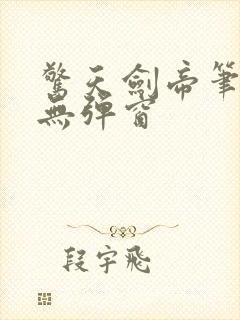 驚天劍帝筆
無彈窗
段宇飛